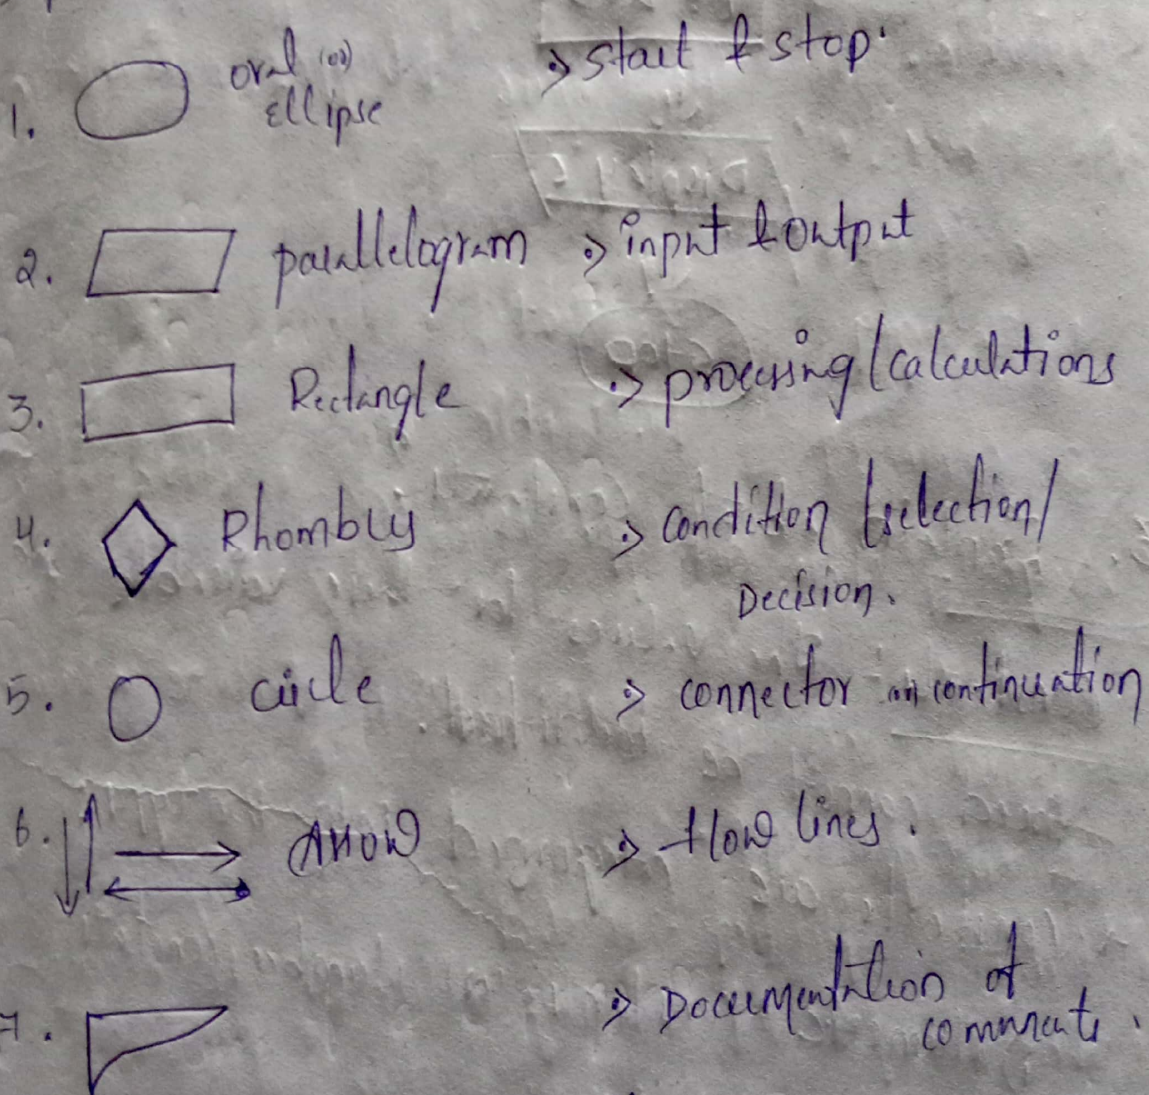 1. oval (or) ellipse => start & stop.
2. parallelogram => input & output
3. Rectangle => processing/calculations
4. Rhombus => condition/selection/
Decision.
5. circle => connector or continuation
6. Arrow => flow lines.
7. => Documentation of
comments.